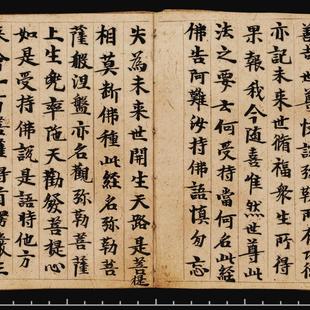 亦記未來世脩福衆生所得
果報我今随喜惟然世尊此
法之要云何受持當何名此經
佛告阿難汝持佛語慎勿忘
失為未來世開生天路是菩提
相莫斷佛種此經名弥勒菩
薩般涅盤亦名觀弥勒菩薩
上生兜率陁天勸發菩提心
如是受持佛說是語時他方